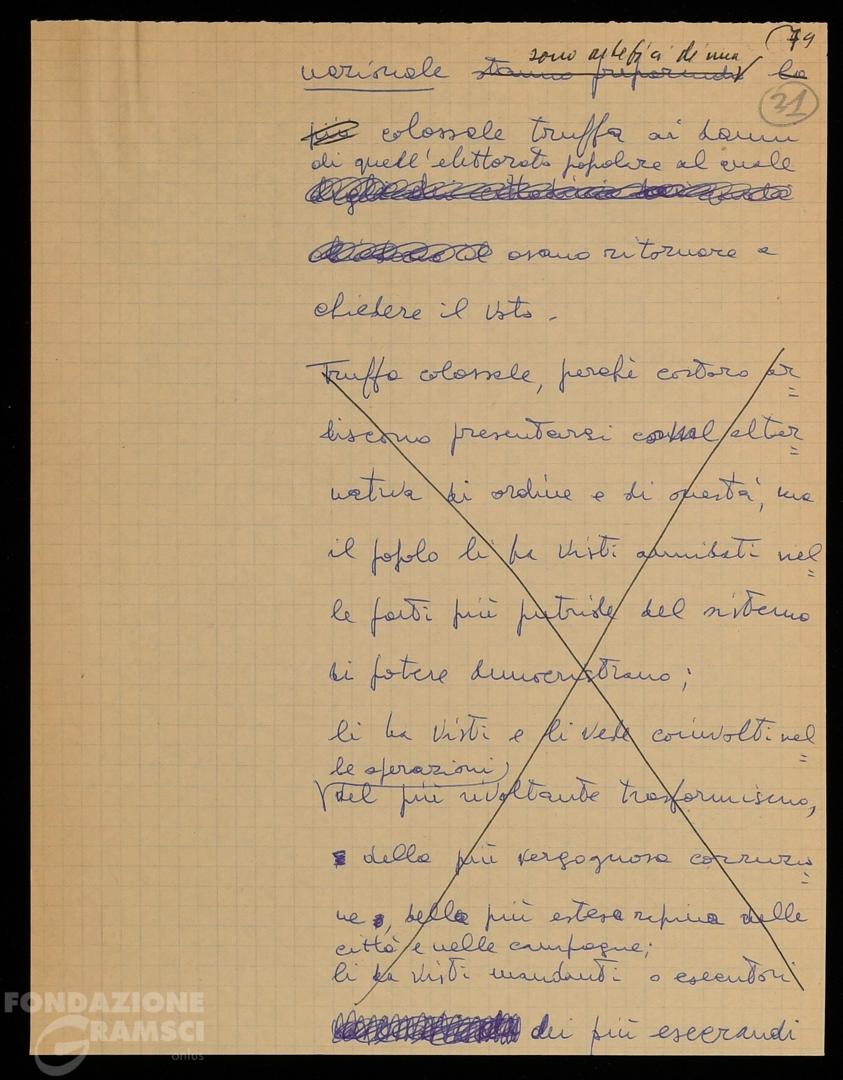 sono artefici di una
19
nazionale stanno preparando la
21
più colossale truffa ai danni
di quell'elettorato popolare al quale
osano ritornare a
chiedere il voto.
Truffa colossale, perchè costoro ar=
discono presentarsi alter=
nativa di ordine e di onestà, ma
il popolo li ha visti annidati nel=
le parti più putride del sistema
di potere democristiano;
li ha visti e li vede coinvolti nel=
le operazioni
del più rivoltante trasformismo,
della più vergognosa corruzio=
ne, della più estesa rapina delle
città e nelle campagne;
li ha visti mandanti o esecutori
dei più esecrandi
FONDAZIONE
GRAMSCI
onlus